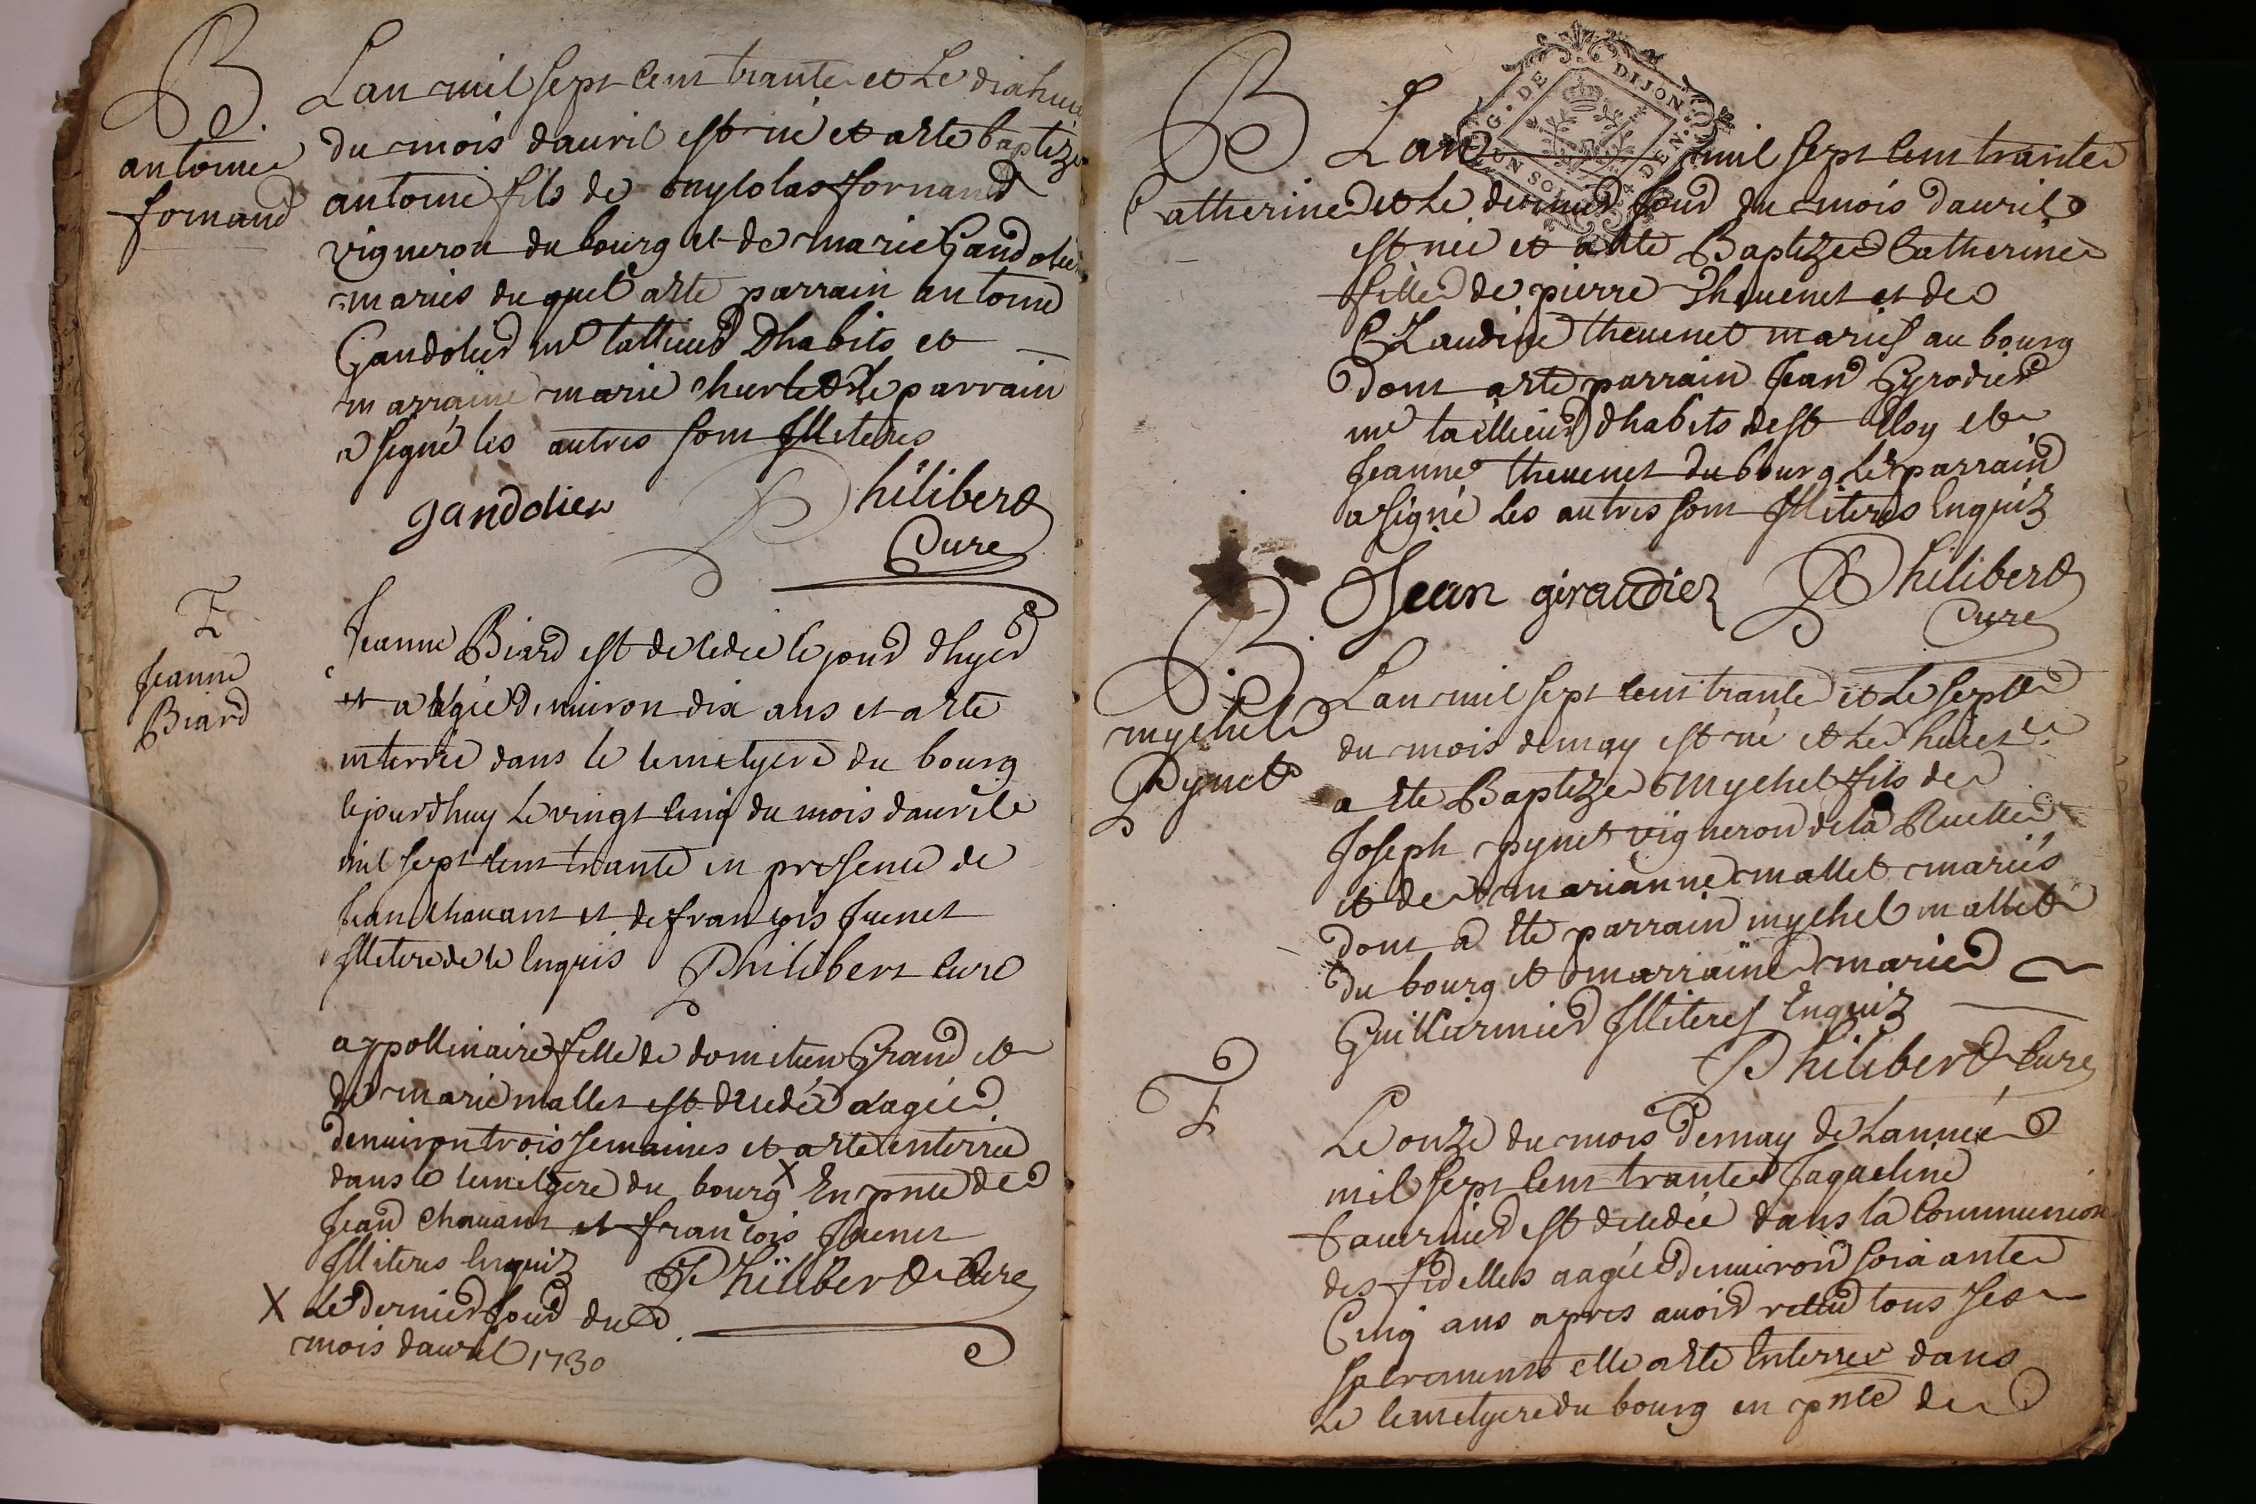 B
antoine
fornand
Lan mil sept cent trante et Le diahuit
du mois dauril est né et a este baptizé
antoine fils de nycolas fornand
vigneron du bourg et de marie Gandolier
mariés duquel a este parrain antoine
Gandolier me tallieur Dhabits et
marraine marie le parrain
a signé les autres sont Illiteres
gandolier Philibert
Cure
F
Jeanne
Biard
Jeanne Biard est decedée le jour dhyer
et a agée denuiron dix ans et a este
interrée dans le cemetyere du bourg
cejourdhuy Le vingt cinq du mois dauril
mil sept cent trante en presence de
Jean chauant et de francois Juenet
Illiteré de ce enquis Philibert Cure
appollinaire fille de domitien Grand et
de marie mallet est decedée aagée
denuiron trois semaines et a este enterrée
dans le cemetyere du bourg X En pnce de
Jean Chauant et francois Juenet
Illiteres enquis Philibert Cure
X Le dernier Jour du
mois dauril 1730
G. DE DIJON
UN SOL 4 DEN.
B
Catherine
Lan mil sept cent trante
et Le dernier Jour du mois dauril
est née et a este Baptizee Catherine
fille de pierre Theuenet et de
Claudine theuenet mariés au bourg
dont a este parrain Jean Gyrodier
me taillieur dhabits de st Eloy et
Jeanne theuenet du bourg Le parrain
a signé Les autres sont Illiteres enquis
Jean giraudier Philibert
Cure
B
mychel
Pynet
Lan mil sept cent trante et Le sept
du mois de may est né et Le huict
a este Baptizé Mychel fils de
Joseph pynet vigneron de la Ruelle
et de marianne mallet mariés
dont a este parrain mychel mallet
du bourg et marraine marie
Guillermier Illiteres enquis
Philibert Cure
F
Le onze du mois de may de Lannée
mil sept cent trante Jaqueline
Fauernier est decedée dans la Communion
des fidelles aagée denuiron soixante
Cinq ans apres auoir receu tous ses
sacrements elle a este Enterrée dans
Le cemetyere du bourg en pnce de